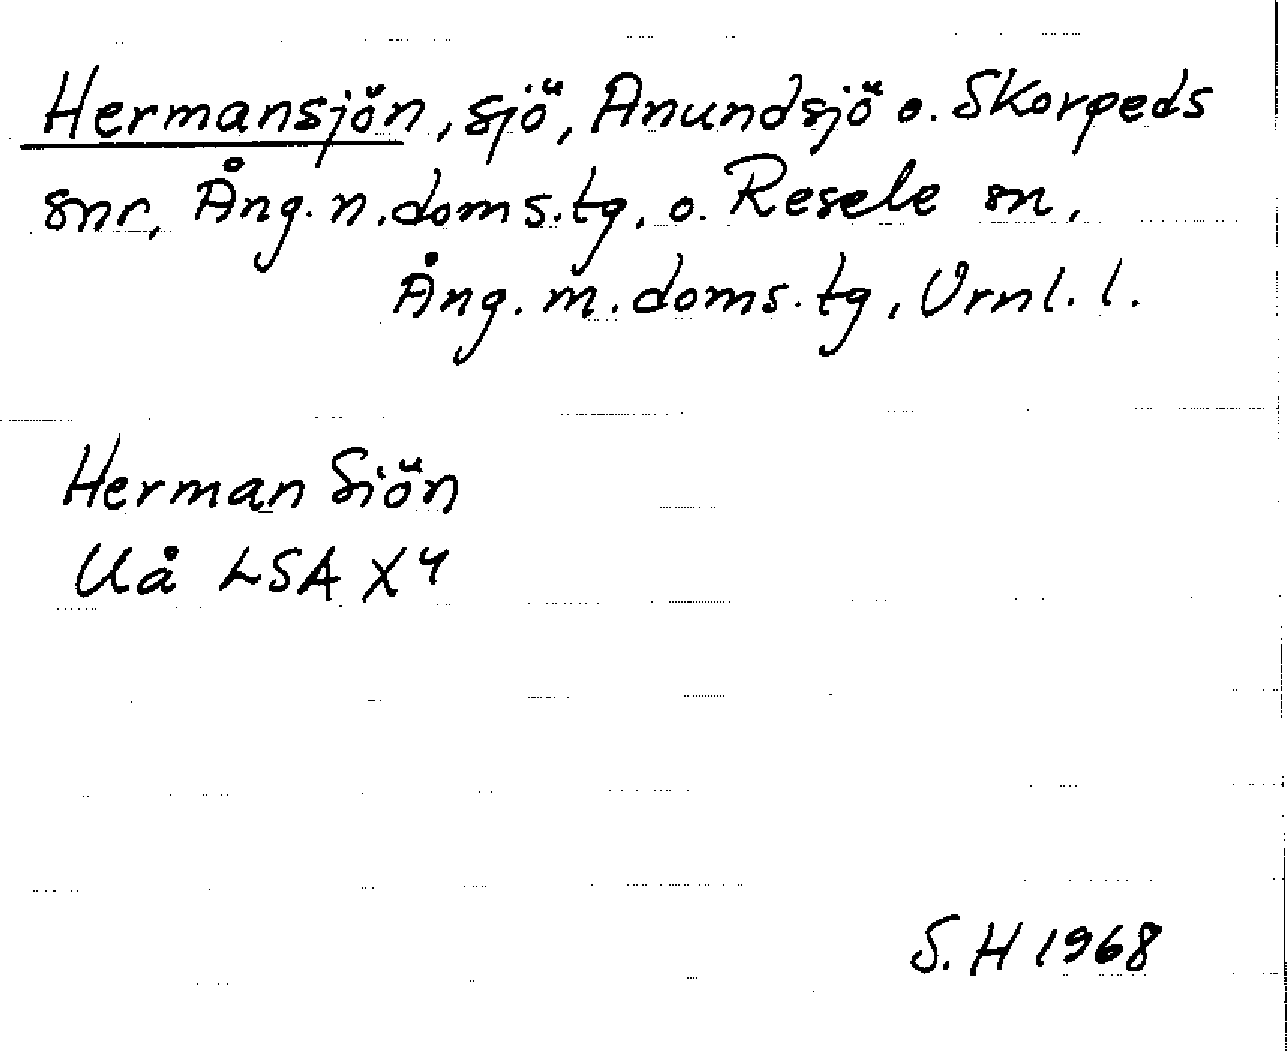 Hermansjön, sjö, Anundsjö o. Skorpeds
snr, Ång. n. doms.tg. o. Resele sn,
Ång. m. doms. tg, Vrnl. l.
Herman Siön
Uå LSA X4
S. H 1968